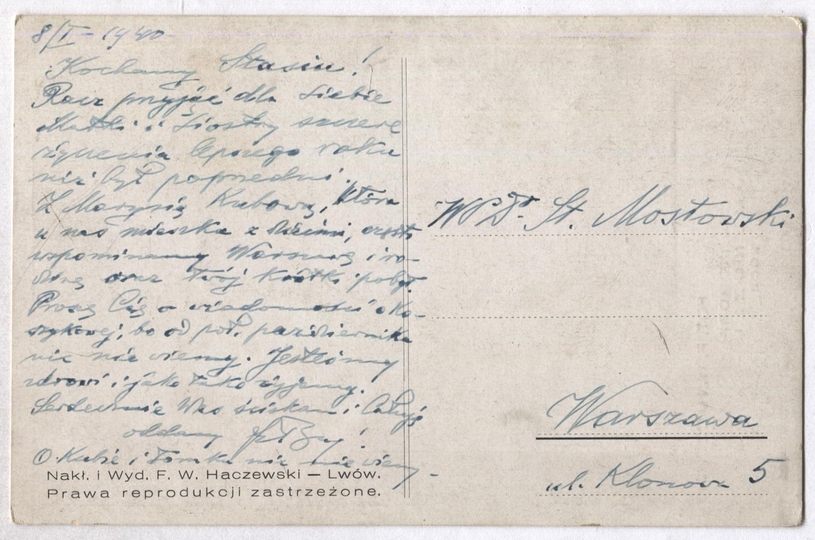 8/I - 1940
Kochany Stasiu!
Racz przyjąć dla siebie
Matki i Siostry szczere
życzenia lepszego roku
niż był poprzedni.
Z Marysią Kubową, która
u nas mieszka z dziećmi, często
wspominamy Warszawę i ro-
dzinę oraz Twój krótki pobyt.
Proszę Cię o wiadomości o Ko-
szykowej, bo od poł. października
nic nie wiemy. Jesteśmy
zdrowi i jako tako żyjemy.
Serdecznie Was ściskam i całuję
oddany
O Kubie i Tomku nic nie wiemy -
Nakł. i Wyd. F. W. Haczewski — Lwów.
Prawa reprodukcji zastrzeżone.
WP Dr. St. Mostowski
Warszawa
ul. Klonowa 5